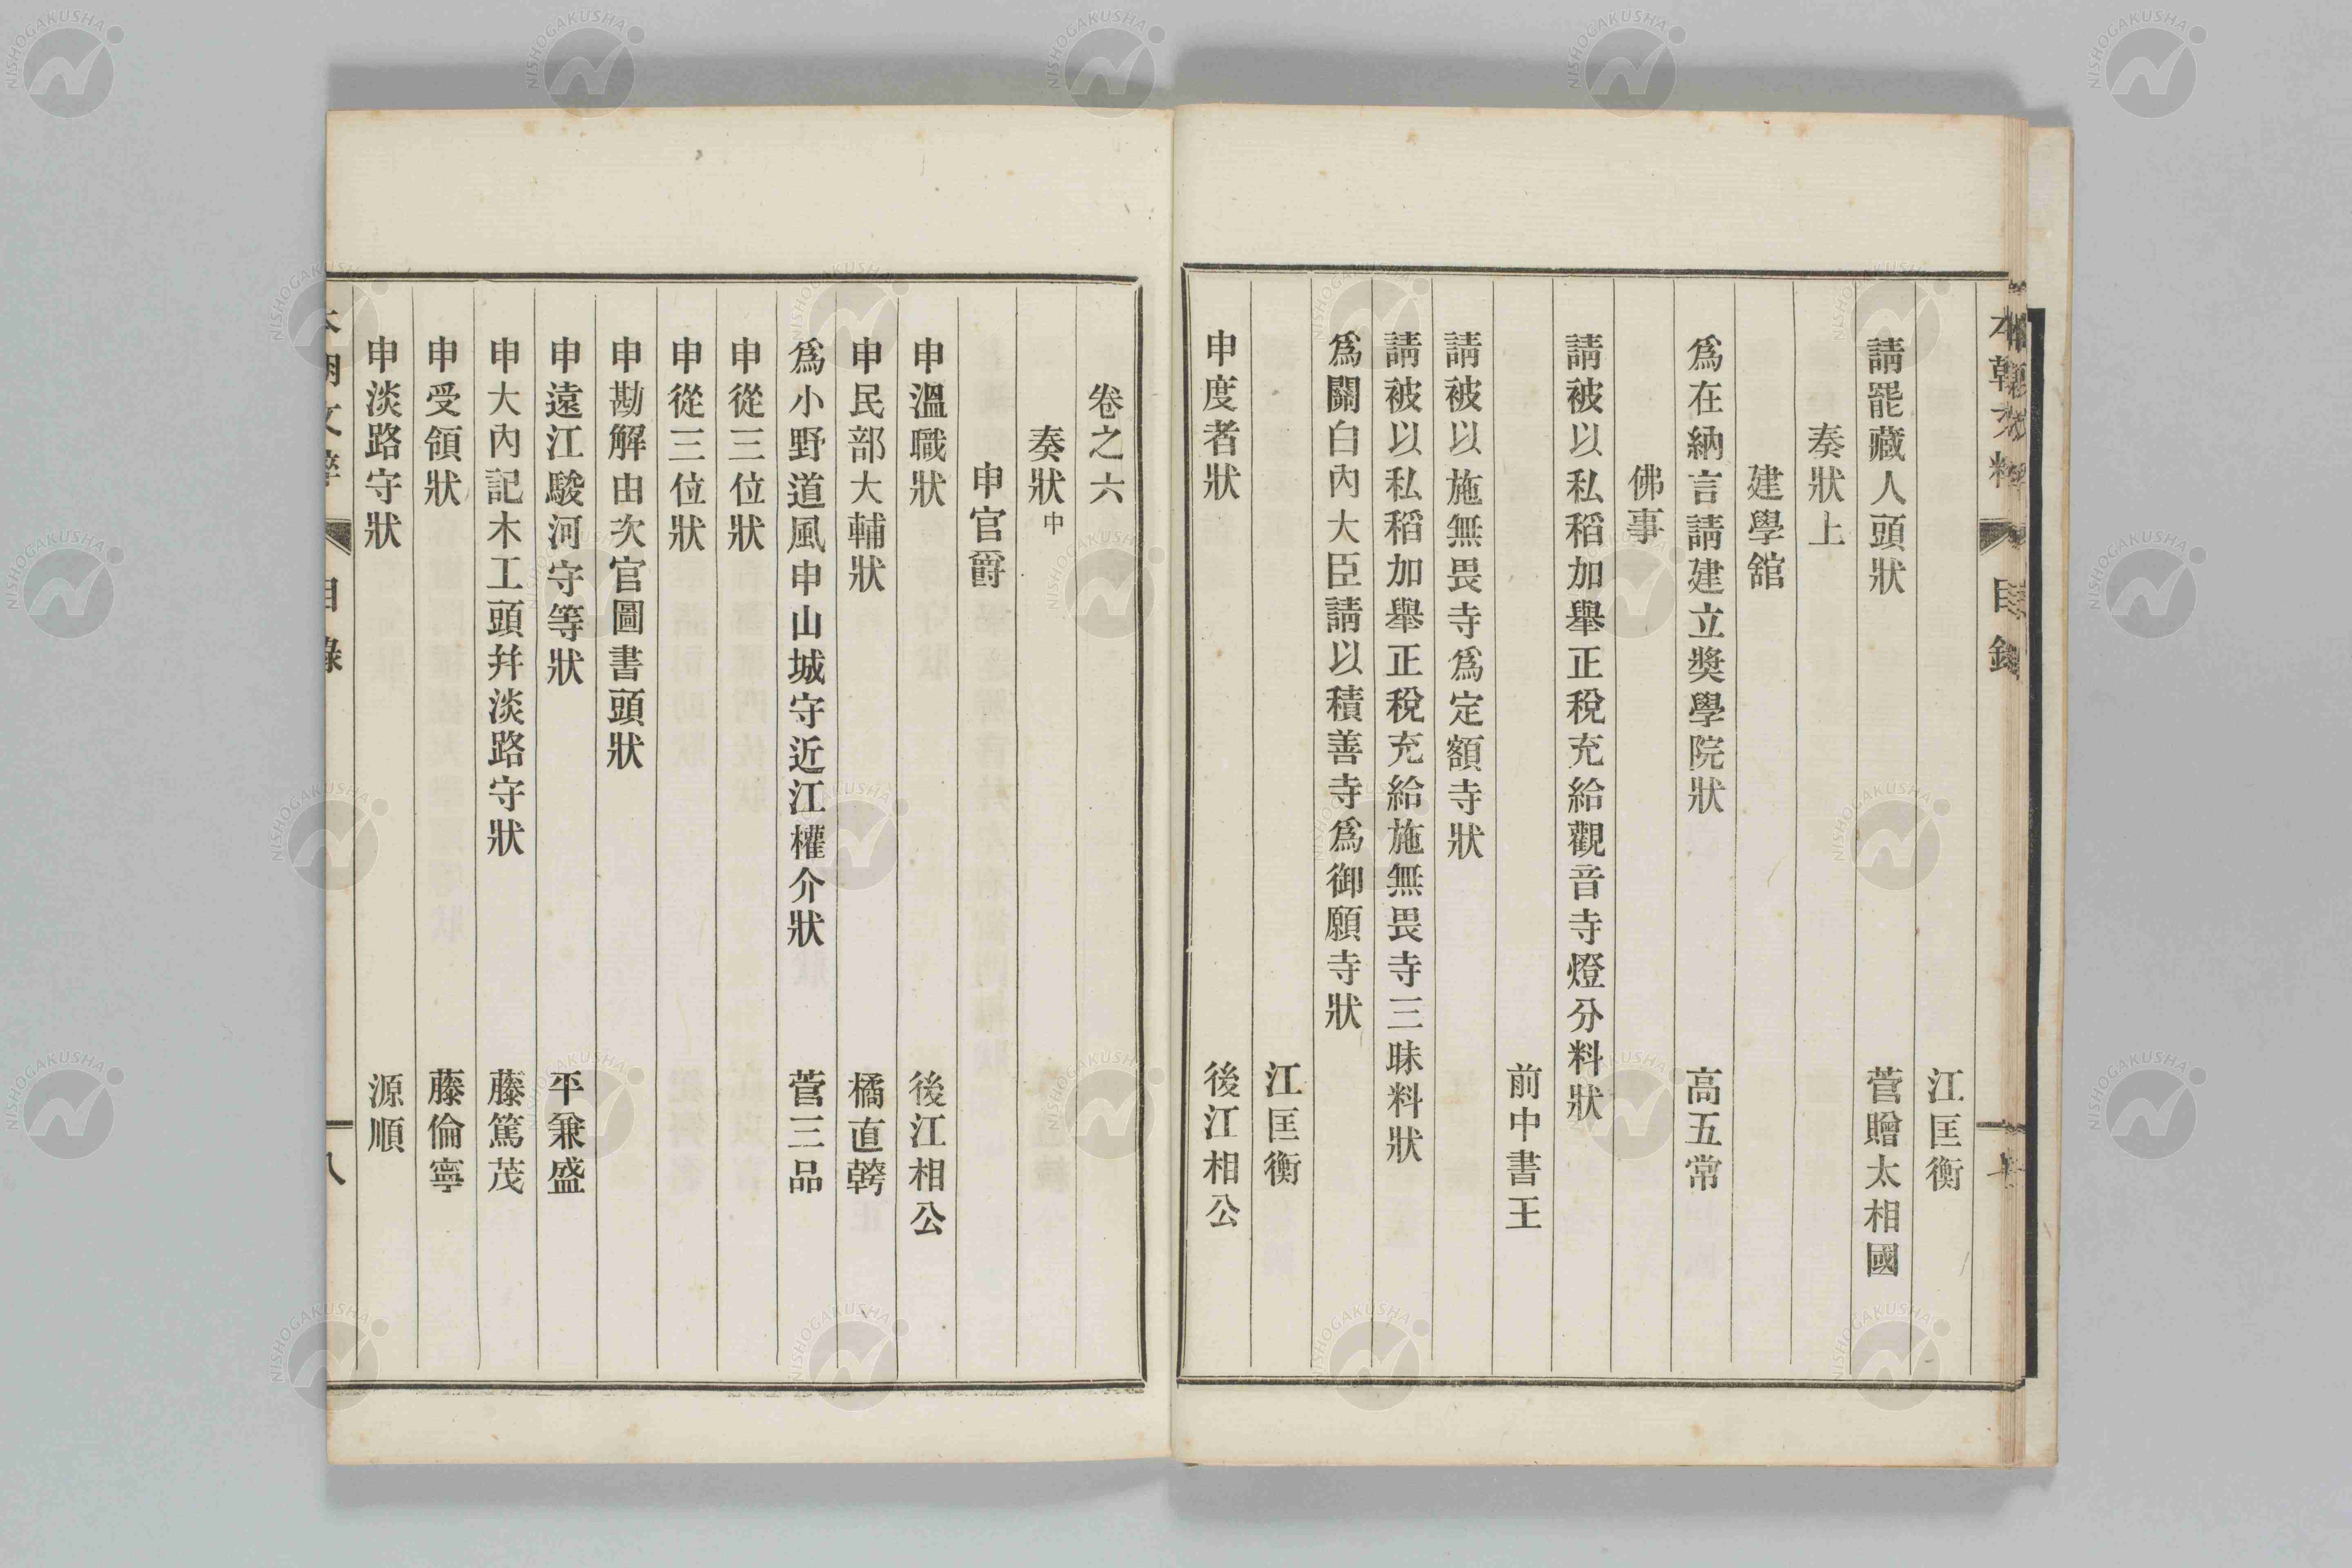 江匡衡
請罷藏人頭狀 菅贈太相國
奏狀上
建學舘
爲在納言請建立奬學院狀 高五常
佛事
請被以私稻加舉正稅充給觀音寺燈分料狀
前中書王
請被以施無畏寺爲定額寺狀
請被以私稻加舉正稅充給施無畏寺三昧料狀
爲關白內大臣請以積善寺爲御願寺狀
江匡衡
申度者狀 後江相公
卷之六
奏狀中
申官爵
申溫職狀 後江相公
申民部大輔狀 橘直幹
爲小野道風申山城守近江權介狀 菅三品
申從三位狀
申從三位狀
申勘解由次官圖書頭狀
申遠江駿河守等狀 平兼盛
申大內記木工頭幷淡路守狀 藤篤茂
申受領狀 藤倫寧
申淡路守狀 源順
目錄
八
NISHOGAKUSHA